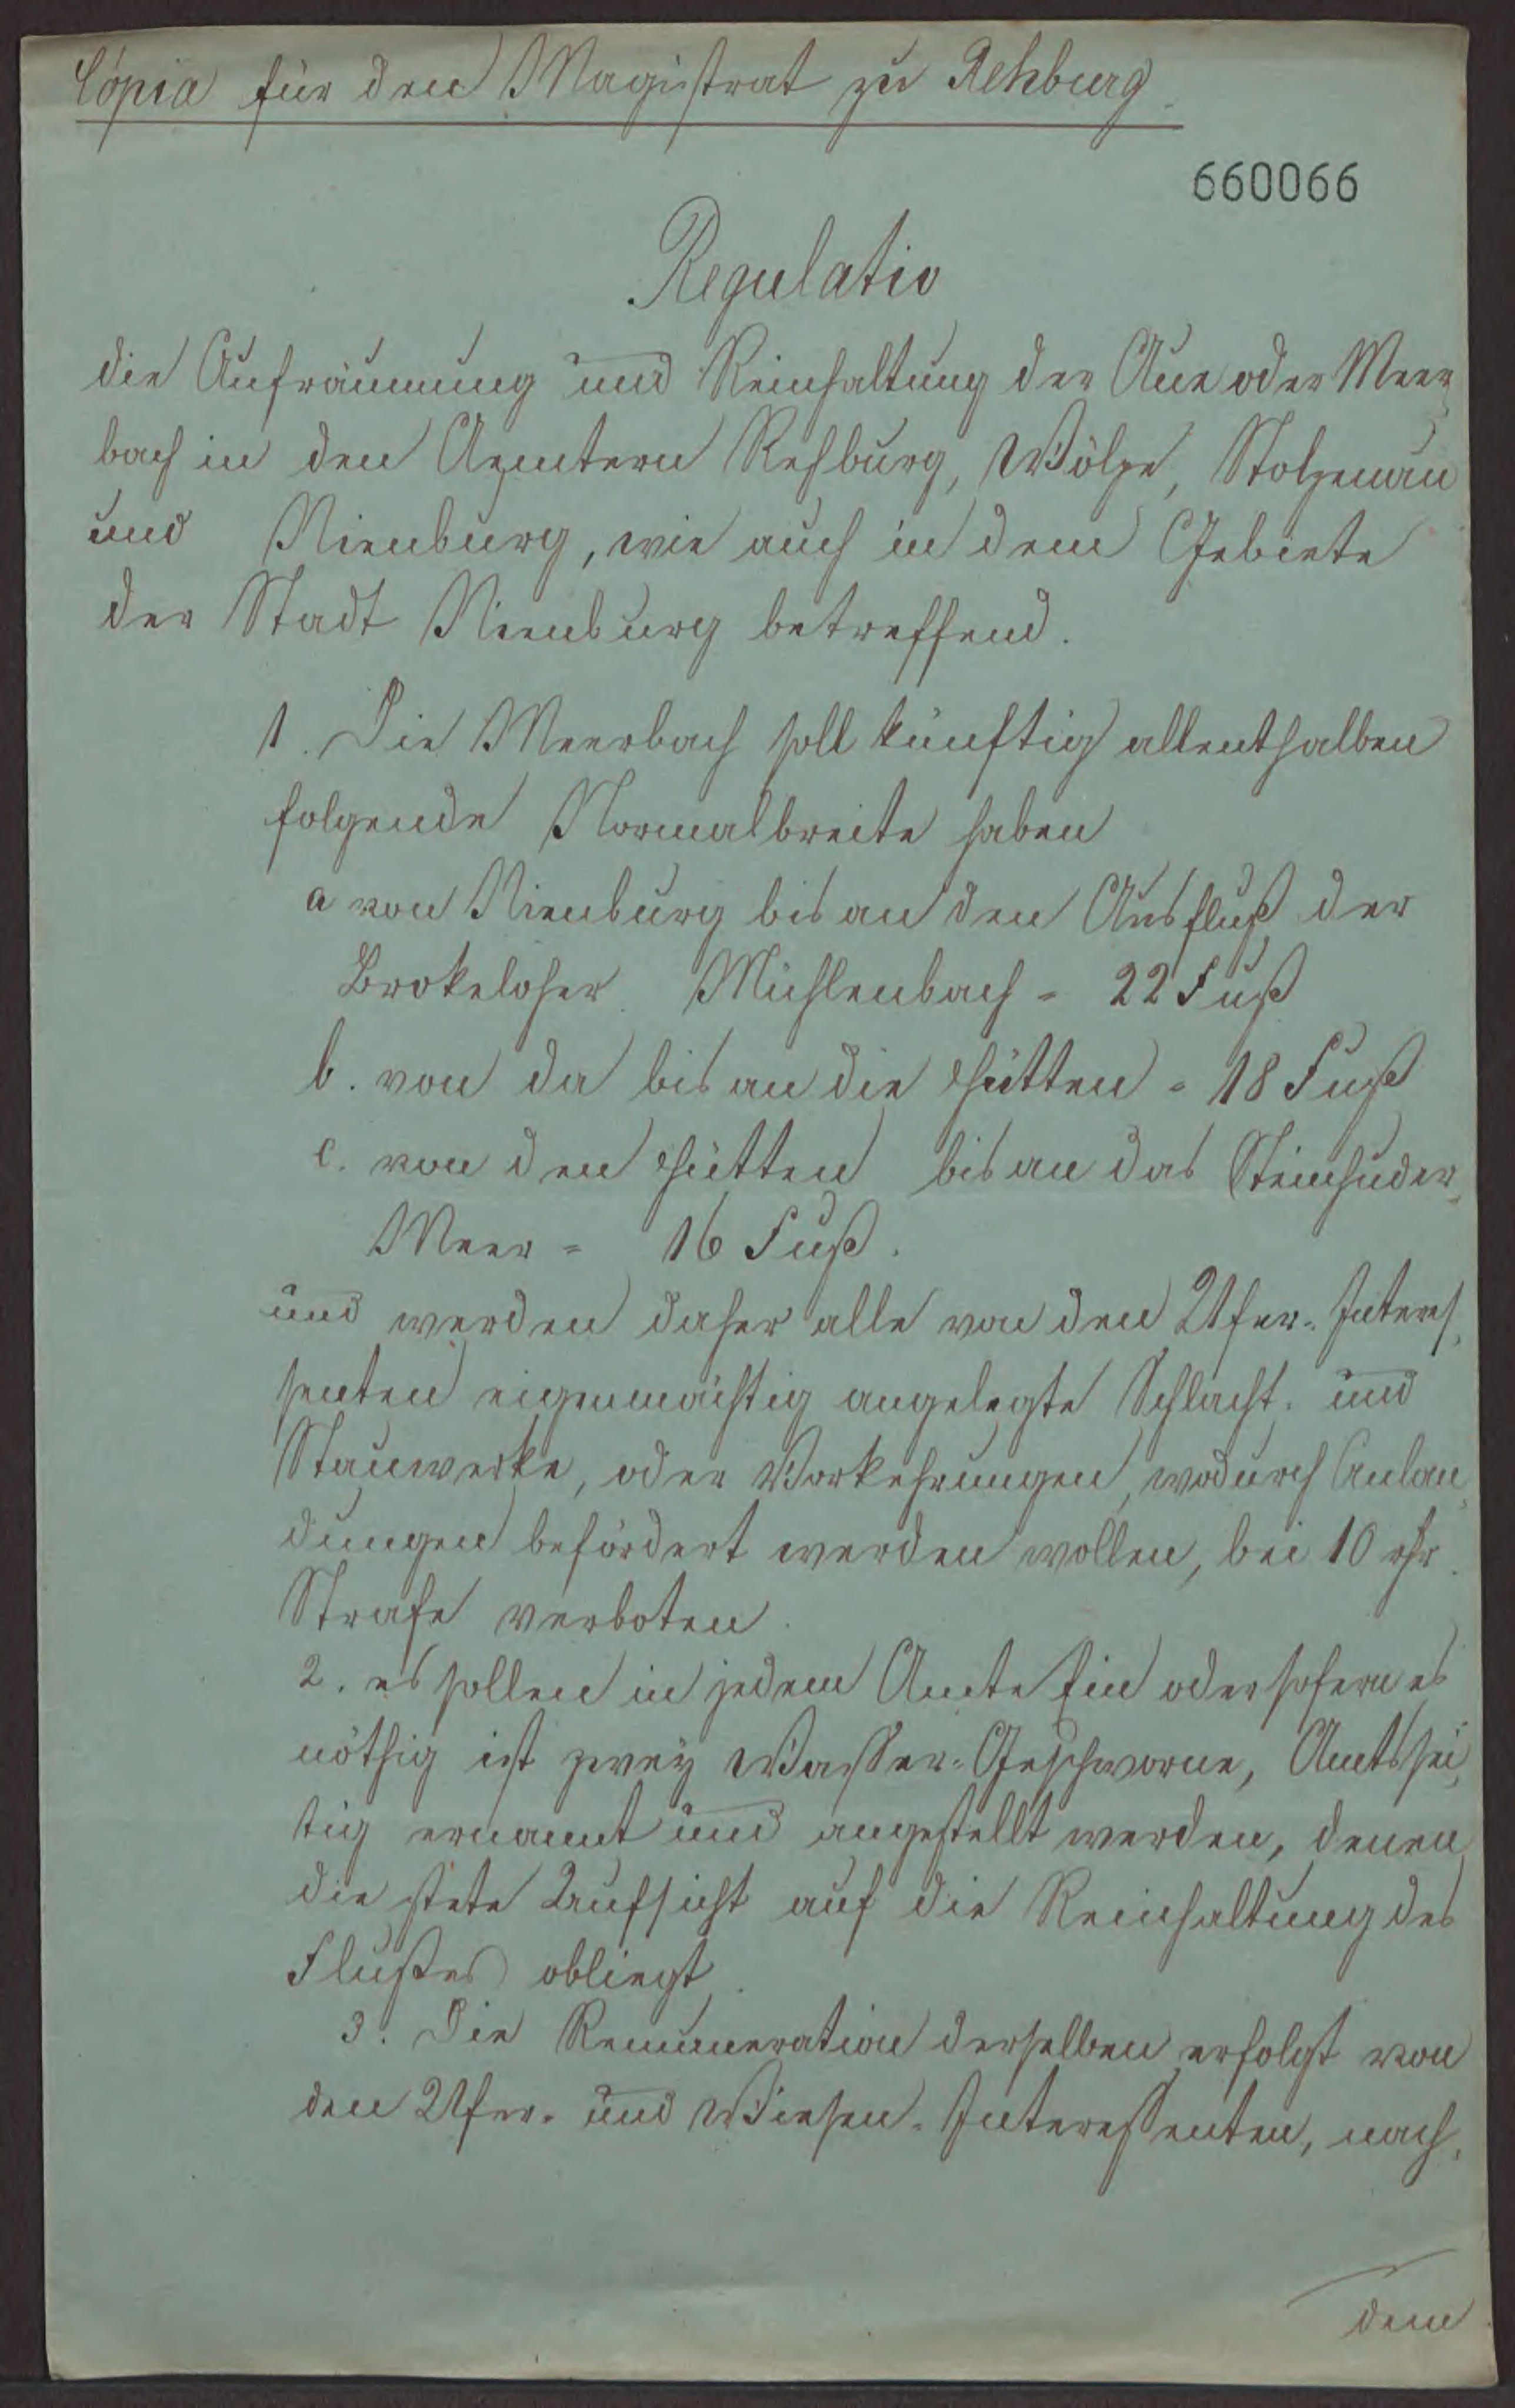 Copia für den Magistrat zu Rehburg.
660066
Regulativ
die Aufräumung und Reinhaltung der Aue oder Meer-
bach in den Aemtern Rehburg, Wölpe, Stolzenau
und Nienburg, wie auch in dem Gebiete
der Stadt Nienburg betreffend.
1. Die Meerbach soll künftig allenthalben
folgende Normalbreite haben
a von Nienburg bis an den Ausfluß der
Brokeloher Mühlenbach = 22 Fuß
b. von da bis an die Hütten = 18 Fuß
c. von den Hütten bis an das Steinhuder-
Meer = 16 Fuß.
und werden daher alle von den Ufer-Interes-
senten eigenmächtig angelegte Schlacht- und
Stauwerke, oder Vorkehrungen, wodurch Anlan-
dungen befördert werden wollen, bei 10 rthr.
Strafe verboten.
2. es sollen in jedem Amte Ein oder sofern es
nöthig ist zwey Wasser-Geschworne, Amtssei-
tig ernannt und angestellt werden, denen
die stete Aufsicht auf die Reinhaltung des
Flußes obliegt.
3. Die Remuneration derselben erfolgt von
den Ufer- und Wiesen-Interessenten, nach-
dem